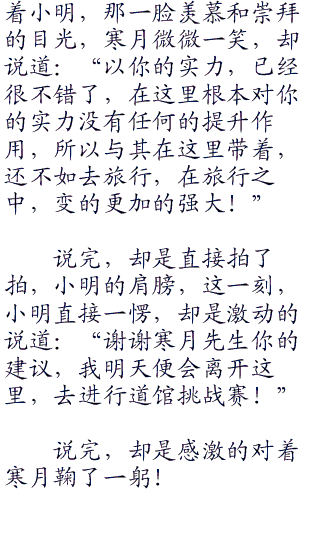 着小明，那一脸羡慕和崇拜
的目光，寒月微微一笑，却
说道：“以你的实力，已经
很不错了，在这里根本对你
的实力没有任何的提升作
用，所以与其在这里带着，
还不如去旅行，在旅行之
中，变的更加的强大！”
说完，却是直接拍了
拍，小明的肩膀，这一刻，
小明直接一愣，却是激动的
说道：“谢谢寒月先生你的
建议，我明天便会离开这
里，去进行道馆挑战赛！”
说完，却是感激的对着
寒月鞠了一躬！